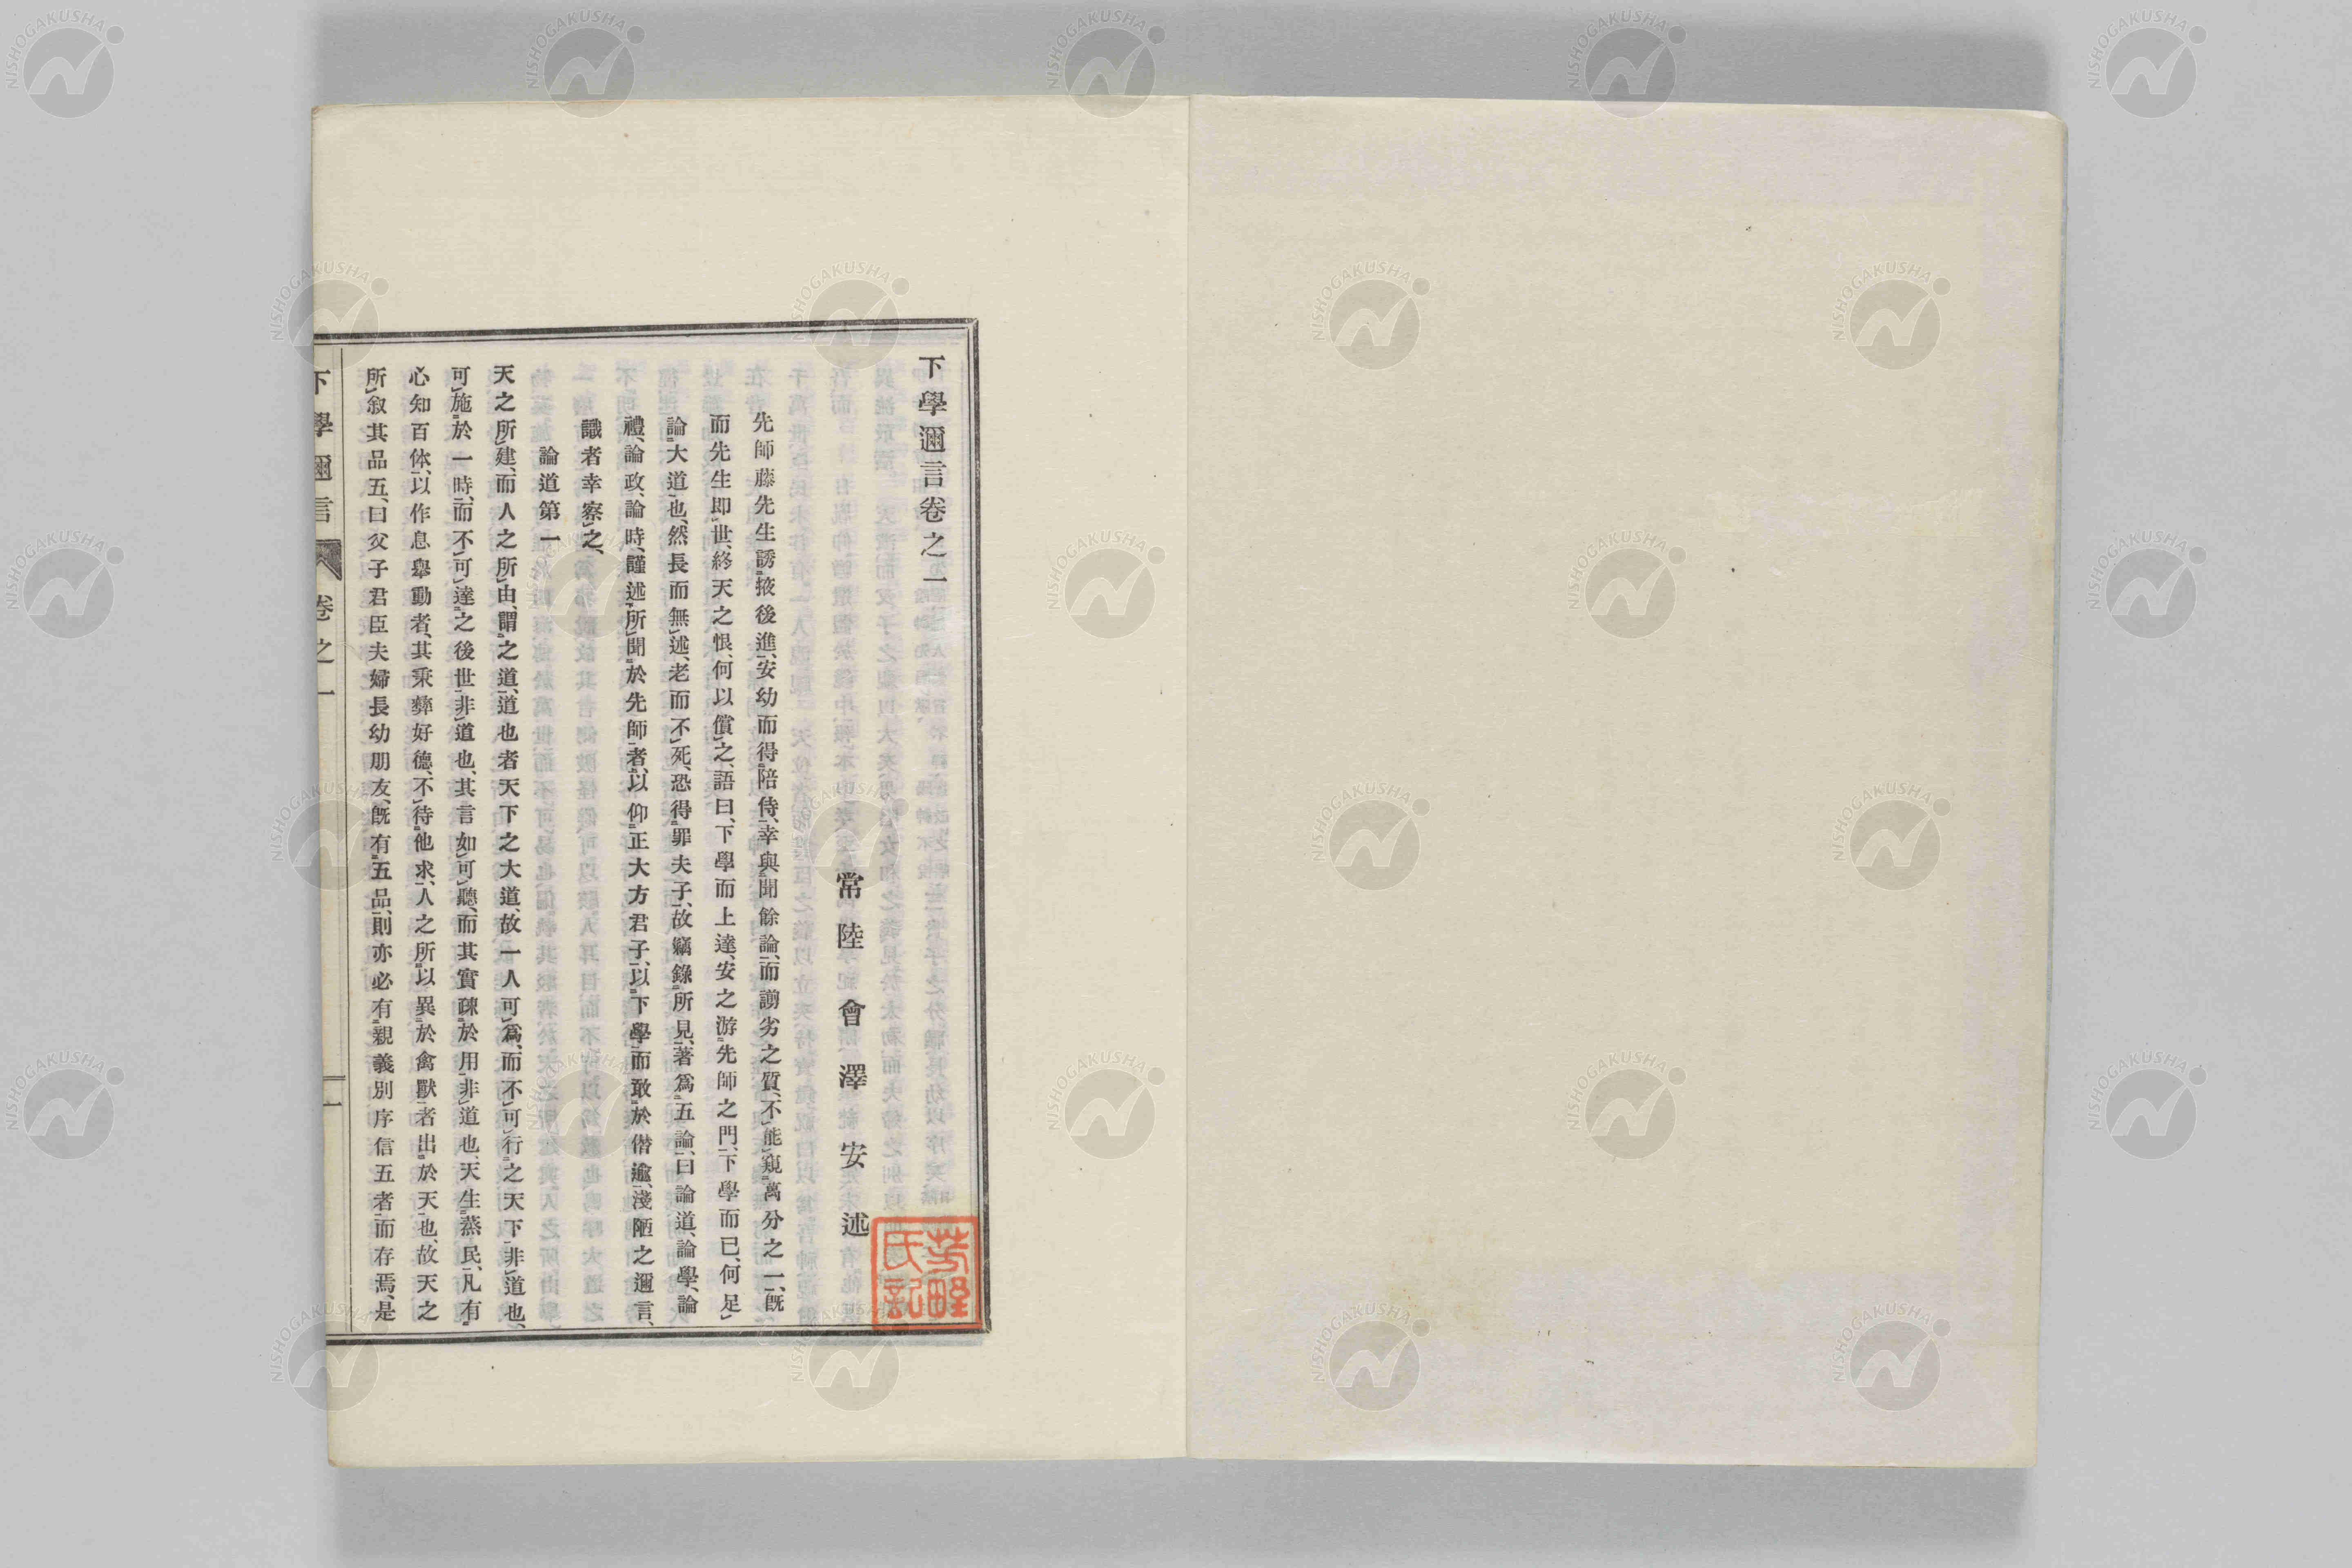 下學邇言卷之一
常陸 會澤安述
先師藤先生誘掖後進、安幼而得陪侍、幸與聞餘論、而謭劣之質、不能窺萬分之一、既
而先生即世、終天之恨、何以償之、語曰、下學而上達、安之游先師之門、下學而已、何足
論大道也、然長而無述、老而不死、恐得罪夫子、故竊錄所見、著爲五論、曰論道、論學、論
禮、論政、論時、謹述所聞於先師者、以仰正大方君子、以下學而敢於僭逾、淺陋之邇言、
識者幸察之、
論道第一
天之所建、而人之所由、謂之道、道也者天下之大道、故一人可爲、而不可行之天下、非道也、
可施於一時、而不可達之後世、非道也、其言如可聽、而其實疎於用、非道也、天生蒸民、凡有
心知百体、以作息舉動者、其秉彜好德、不待他求、人之所以異於禽獸者出於天也、故天之
所敘其品五、曰父子君臣夫婦長幼朋友、既有五品、則亦必有親義別序信五者而存焉、是
下學邇言 卷之一 一
NISHOGAKUSHA